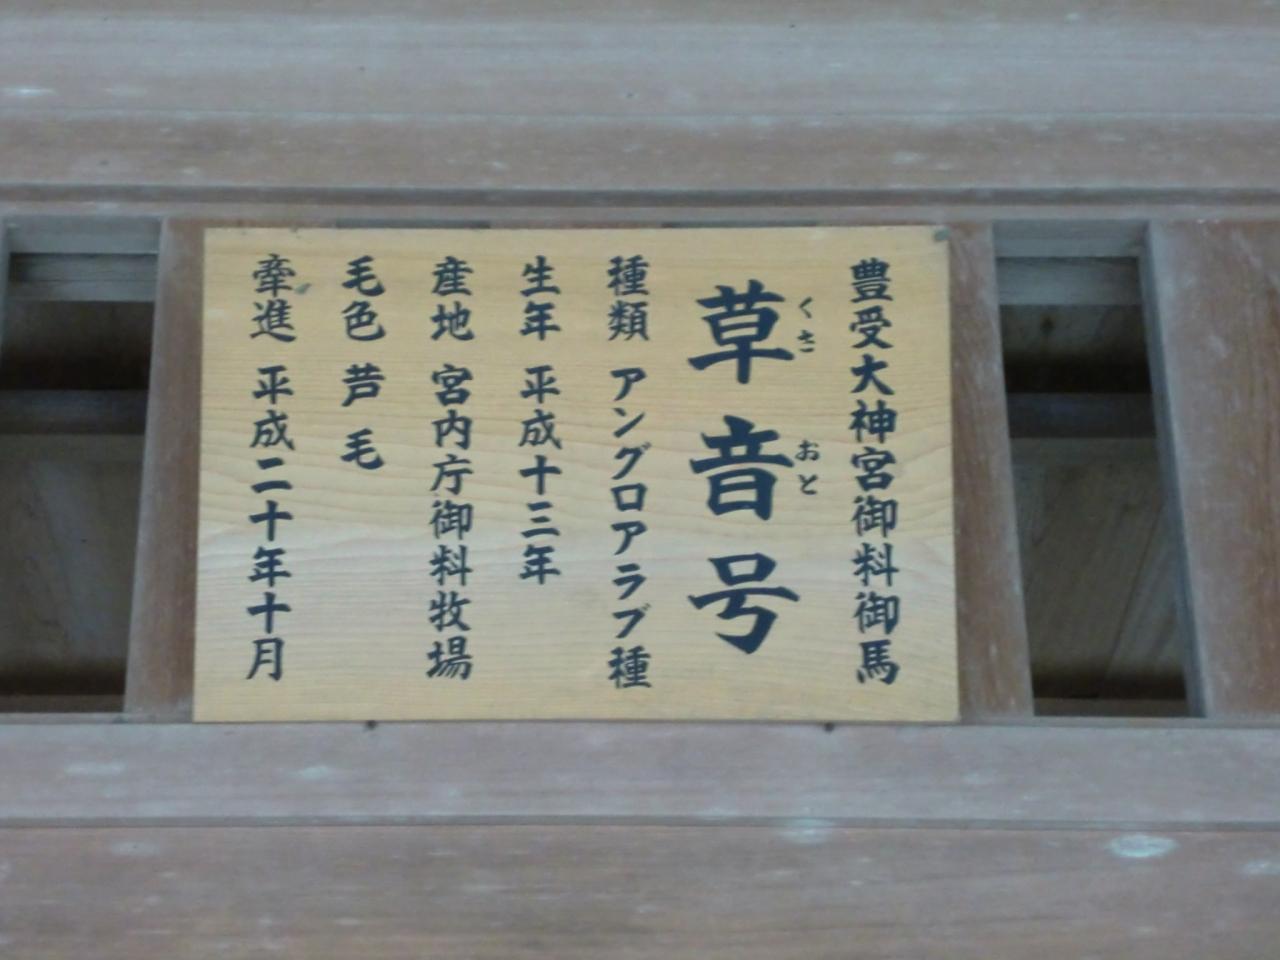 豊受大神宮御料御馬
草音号
くさ おと
種類 アングロアラブ種
生年 平成十三年
産地 宮内庁御料牧場
毛色 芦毛
牽進 平成二十年十月